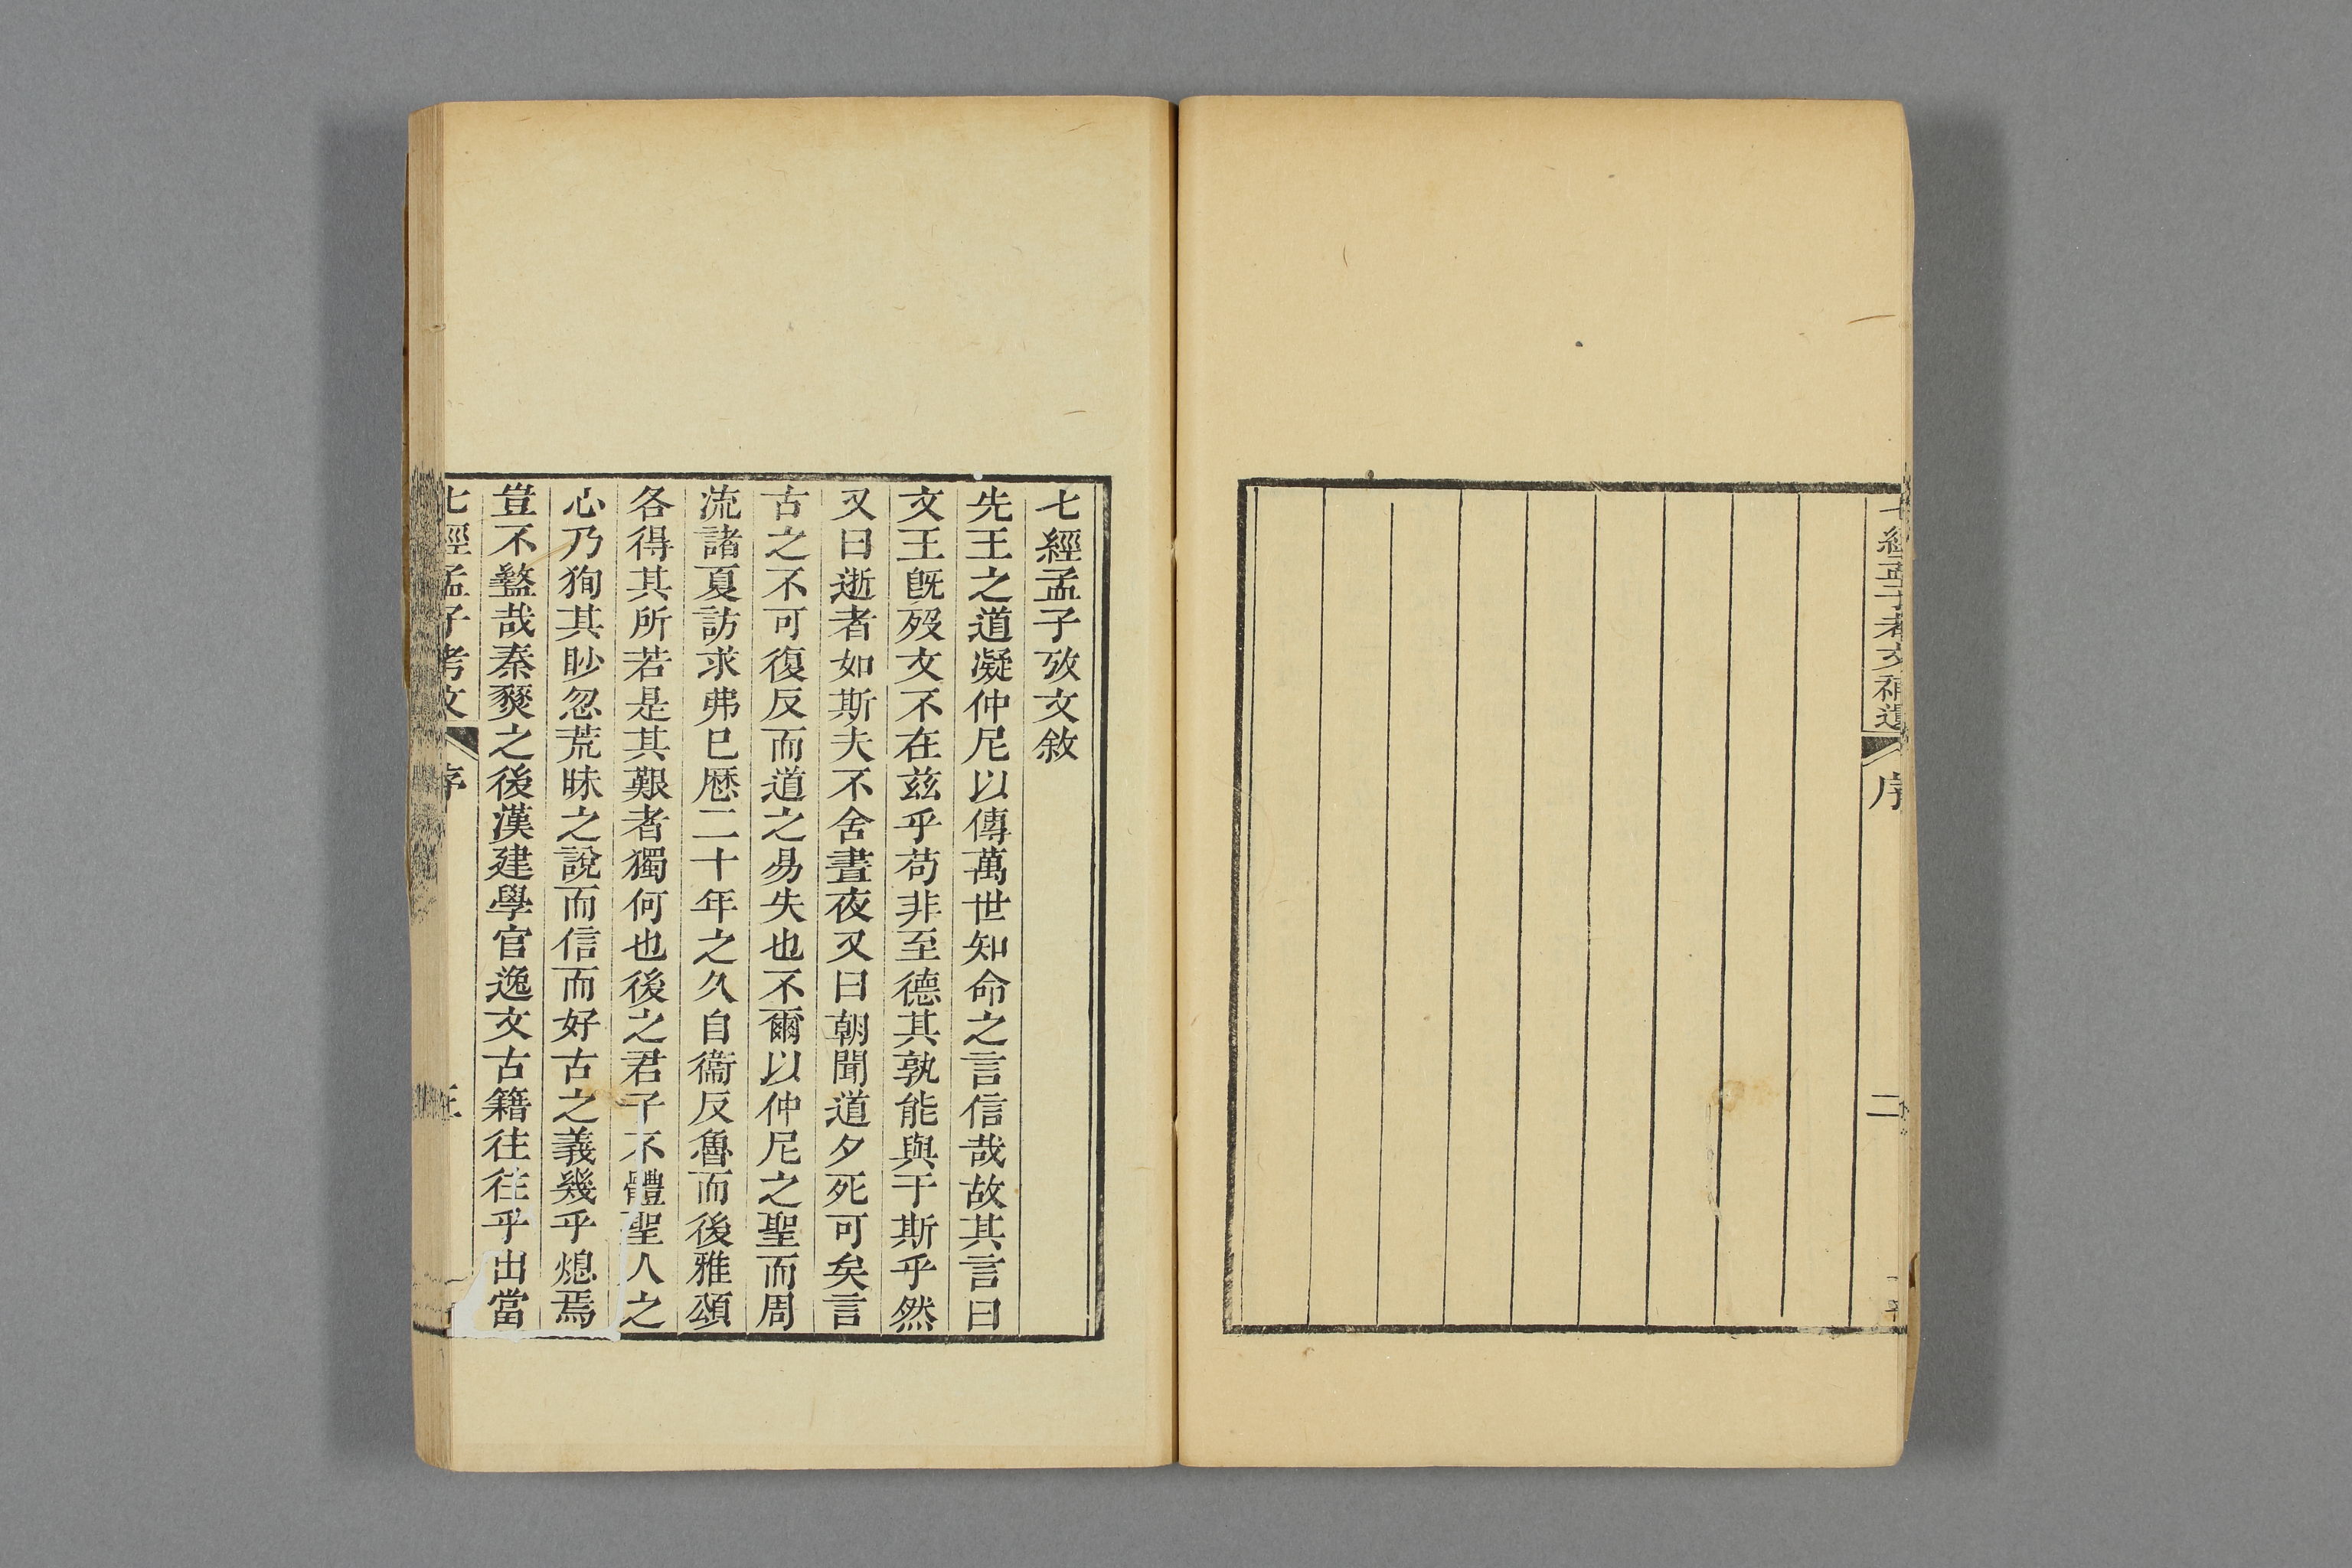 七經孟子考文補遺
序
二
七經孟子攷文敘
先王之道凝仲尼以傳萬世知命之言信哉故其言曰
文王旣歿文不在兹乎苟非至德其孰能與于斯乎然
又曰逝者如斯夫不舍晝夜又曰朝聞道夕死可矣言
古之不可復反而道之易失也不爾以仲尼之聖而周
流諸夏訪求弗已厯二十年之久自衞反魯而後雅頌
各得其所若是其艱者獨何也後之君子不體聖人之
心乃狥其眇忽荒昧之說而信而好古之義幾乎熄焉
豈不盭哉秦燹之後漢建學官逸文古籍往往乎出當
七經孟子考文
序